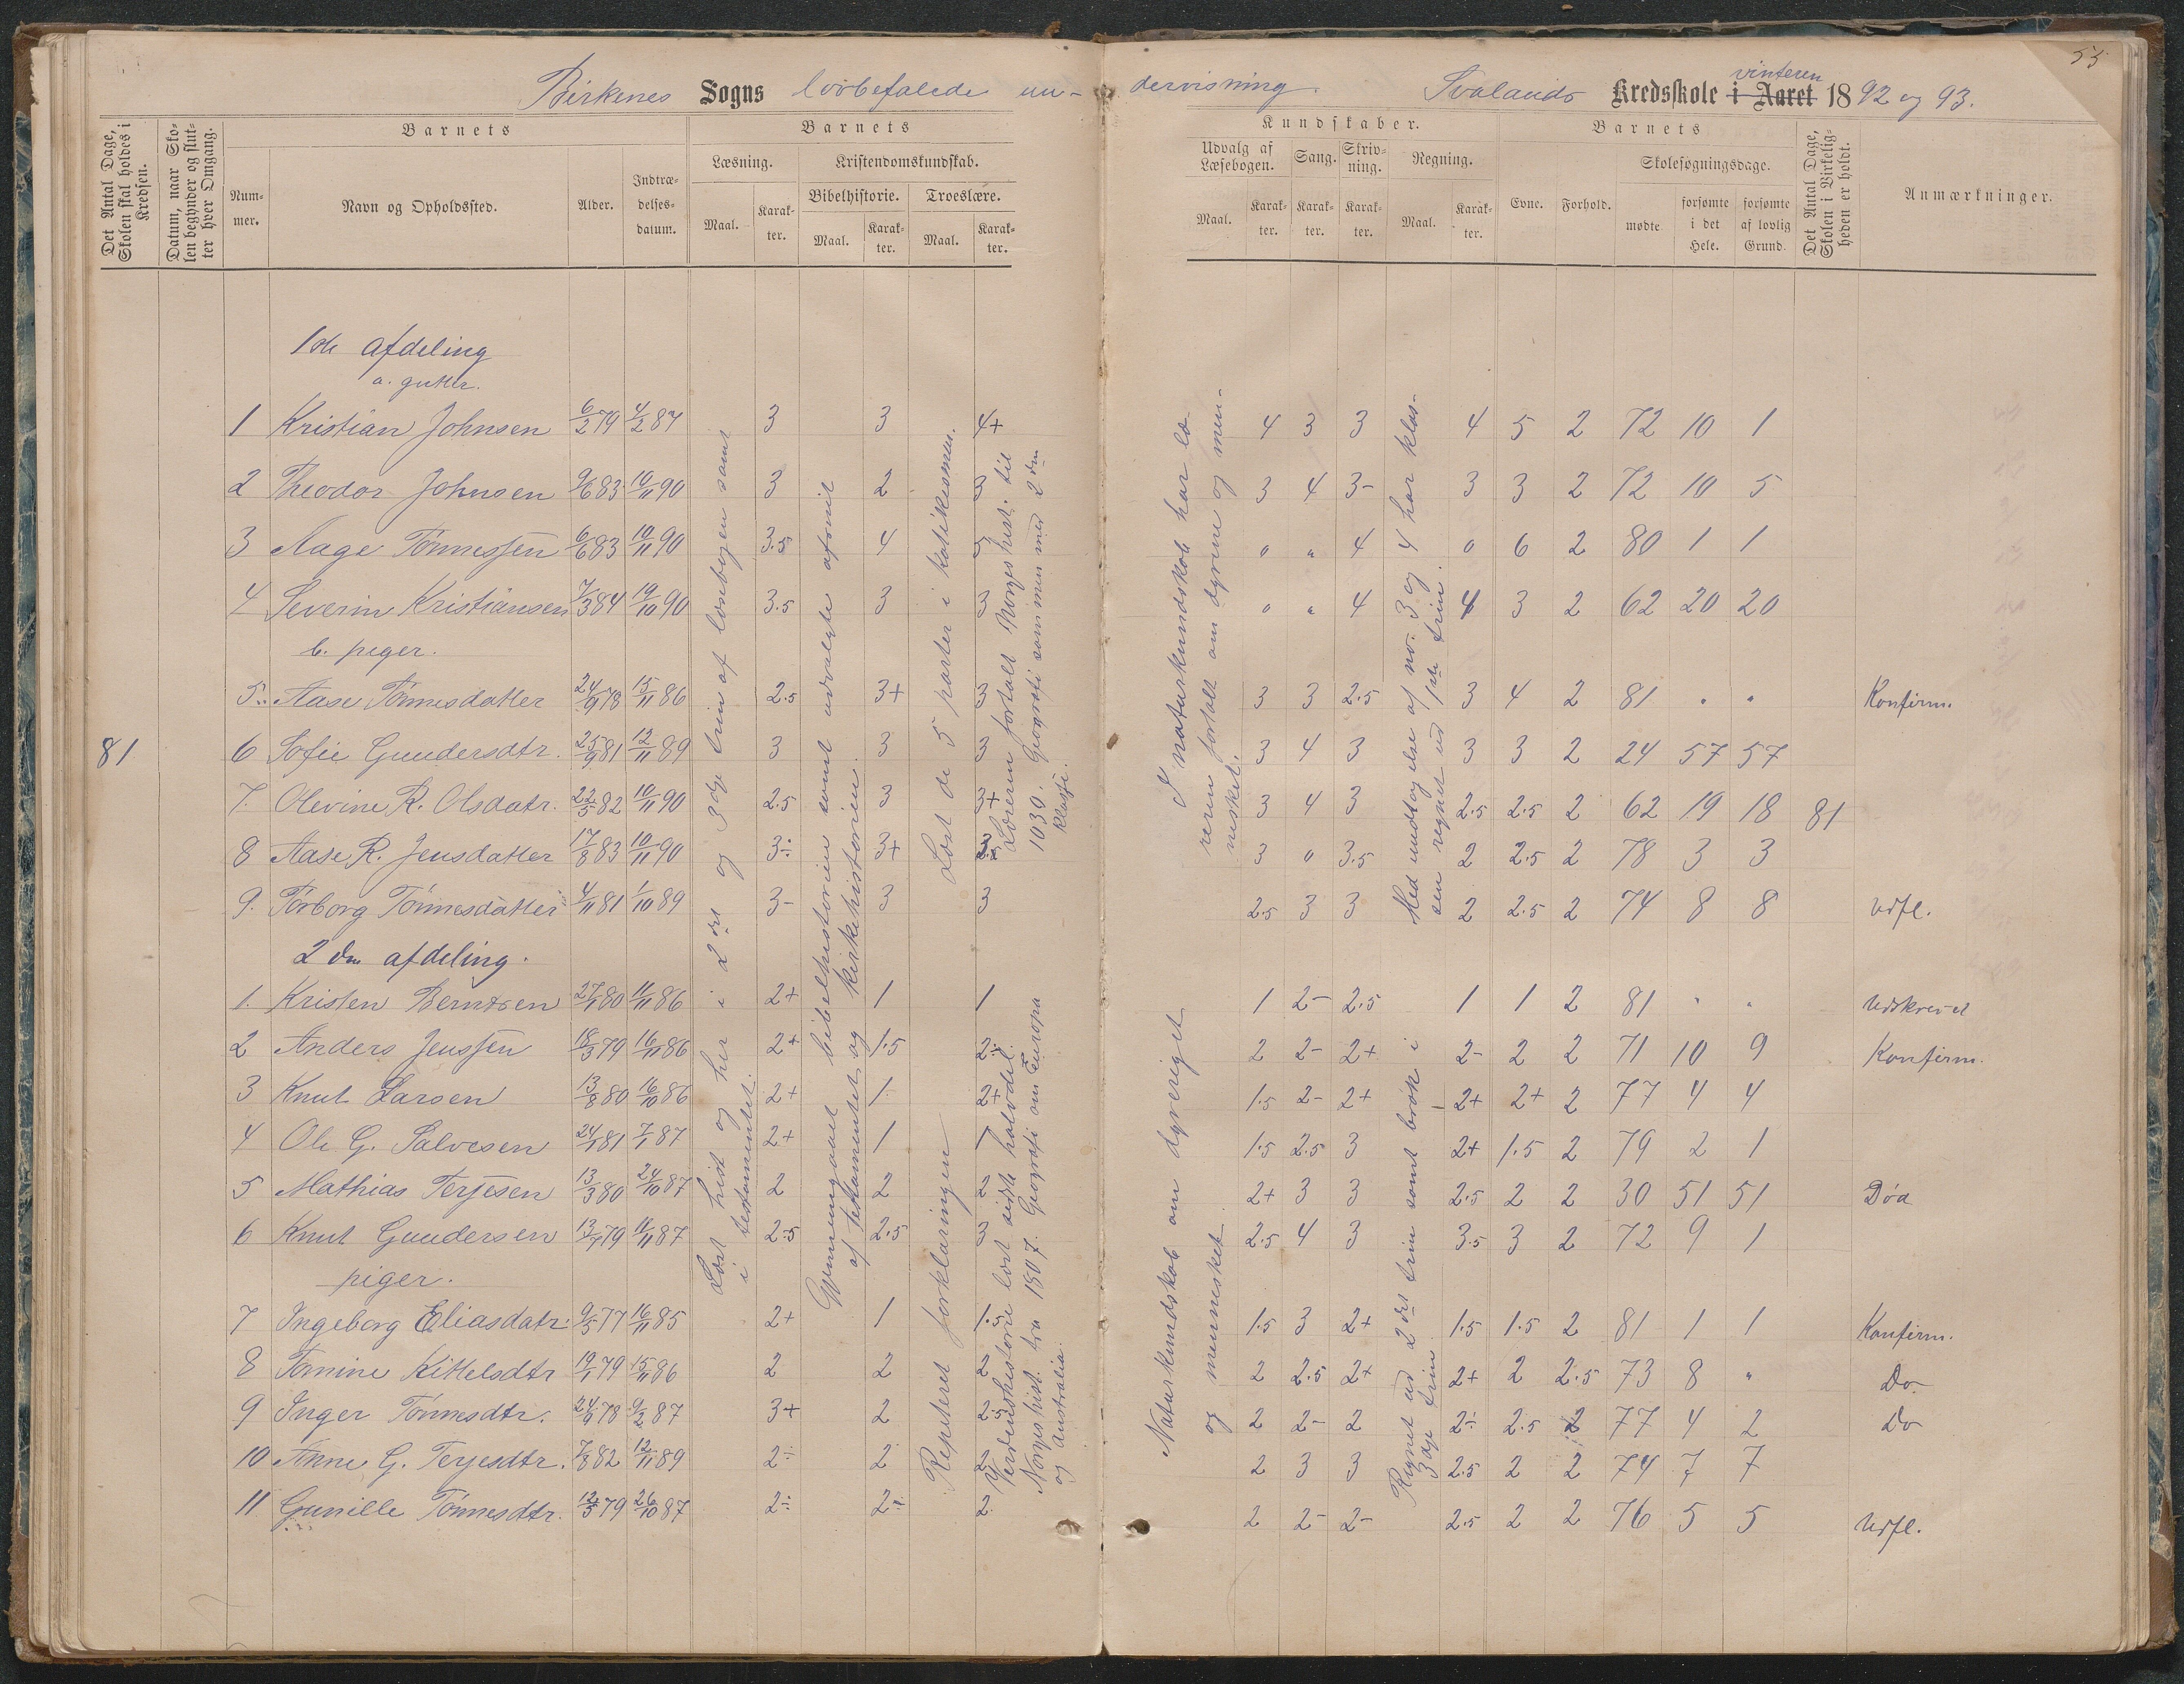 55
Birkenes Sogns lovbefalede un-
dervisning. Svalands Kredsskole i Aaret vinteren 1892 og 93.
Det Antal Dage, Skolen skal holdes i Kredsen.
Datum, naar Skolen begynder og slutter hver Omgang.
Barnets
Nummer.
Navn og Opholdssted.
Alder.
Indtrædelsesdatum.
Barnets
Læsning.
Maal.
Karakter.
Kristendomskundskab.
Bibelhistorie.
Maal.
Karakter.
Troeslære.
Maal.
Karakter.
Kundskaber.
Udvalg af Læsebogen.
Maal.
Karakter.
Sang.
Karakter.
Skrivning.
Karakter.
Regning.
Maal.
Karakter.
Barnets
Evne.
Forhold.
Skolesøgningsdage.
mødte
forsømte i det Hele.
forsømte af lovlig Grund.
Det Antal Dage, Skolen i Virkeligheden er holdt.
Anmærkninger.
1ste afdeling
a. gutter.
1 Kristian Johnsen 6/2 79 4/2 87 3 3 4+ 4 3 3 4 5 2 72 10 1
2 Theodor Johnsen 9/6 83 10/11 90 3 2 3 3 4 3- 3 3 2 72 10 5
3 Aage Tønnessen 6/6 83 10/11 90 3.5 4 5 0 " 4 0 6 2 80 1 1
4 Severin Kristiansen 7/3 84 19/10 90 3.5 3 3 0 " 4 4 3 2 62 20 20
b. piger.
5. Aase Tønnesdatter 24/9 78 15/11 86 2.5 3+ 3 3 3 2.5 3 4 2 81 " " Konfirm.
81
6 Sofie Gundersdtr. 25/9 81 12/11 89 3 3 3 3 4 3 3 3 2 24 57 57
7. Olevine R. Olsdatr. 22/5 82 10/11 90 2.5 3 3+ 3 4 3 2.5 2.5 2 62 19 18 81
8 Aase R. Jensdatter 17/8 83 10/11 90 3÷ 3+ 3 3 0 3.5 2 2.5 2 78 3 3
9. Torborg Tønnesdatter 4/11 81 1/10 89 3- 3 3 2.5 3 3 2 2.5 2 74 8 8 Udfl.
2den afdeling.
1. Kristen Berntsen 27/1 80 11/11 86 2+ 1 1 1 2- 2.5 1 1 2 81 " " Udskrevet
2 Anders Jenssen 18/3 79 16/11 86 2+ 1.5 2÷ 2 2- 2+ 2- 2 2 71 10 9 Konfirm.
3 Knut Larsen 13/8 80 16/10 86 2+ 1 2+ 1.5 2- 2+ 2+ 2+ 2 77 4 4
4 Ole G. Salvesen 24/1 81 7/1 87 2+ 1 1 1.5 2.5 3 2+ 1.5 2 79 2 1
5 Mathias Terjesen 13/3 80 24/10 87 2 2 2 2+ 3 3 2.5 2 2 30 51 51 Død
6 Knut Gundersen 13/1 79 11/11 87 2.5 2.5 3 2.5 4 3 3.5 3 2 72 9 1
piger.
7 Ingeborg Eliasdatr. 9/5 77 16/11 85 2+ 1 1.5 1.5 3 2+ 1.5 1.5 2 81 1 1 Konfirm.
8 Tomine Kittelsdtr 19/1 79 15/11 86 2 2 2 2 2.5 2+ 2+ 2 2.5 73 8 " Do.
9 Inger Tønnesdtr. 24/9 78 9/2 87 3+ 2 2.5 2 2- 2 2÷ 2.5 2 77 4 2 Do
10 Anne G. Terjesdtr. 7/8 82 12/11 89 2÷ 2 2 2 3 3 2.5 2 2 74 7 7
11 Gunille Tønnesdtr. 12/3 79 26/10 87 2÷ 2÷ 2 2 2- 2- 2.5 2 2 76 5 5 Udfl.
Læst hist og her i 2det og 3dje trin af læsebogen samt
i testamentet.
Gjennemgaaet bibelhistorien samt udvalgte afsnit
af testamentet og kirkehistorien.
Læst de 5 parter i katekismen.
Læreren fortalt Norges hist. til
1030. Geografi som mun med 2den
klasse.
Repeteret forklaringen
Verdenshistorie læst sidste halvdel.
Norges hist. fra 1507. Geografi om Europa
og Australia.
I naturkundskab har læ-
reren fortalt om dyrene og men-
nesket.
Med undtagelse af no. 3 og 4 har klas-
sen regnet ud 1ste trin.
Naturkundskab om dyreriget
og mennesket
Regnet ud 2det trin samt brøk i
3dje trin